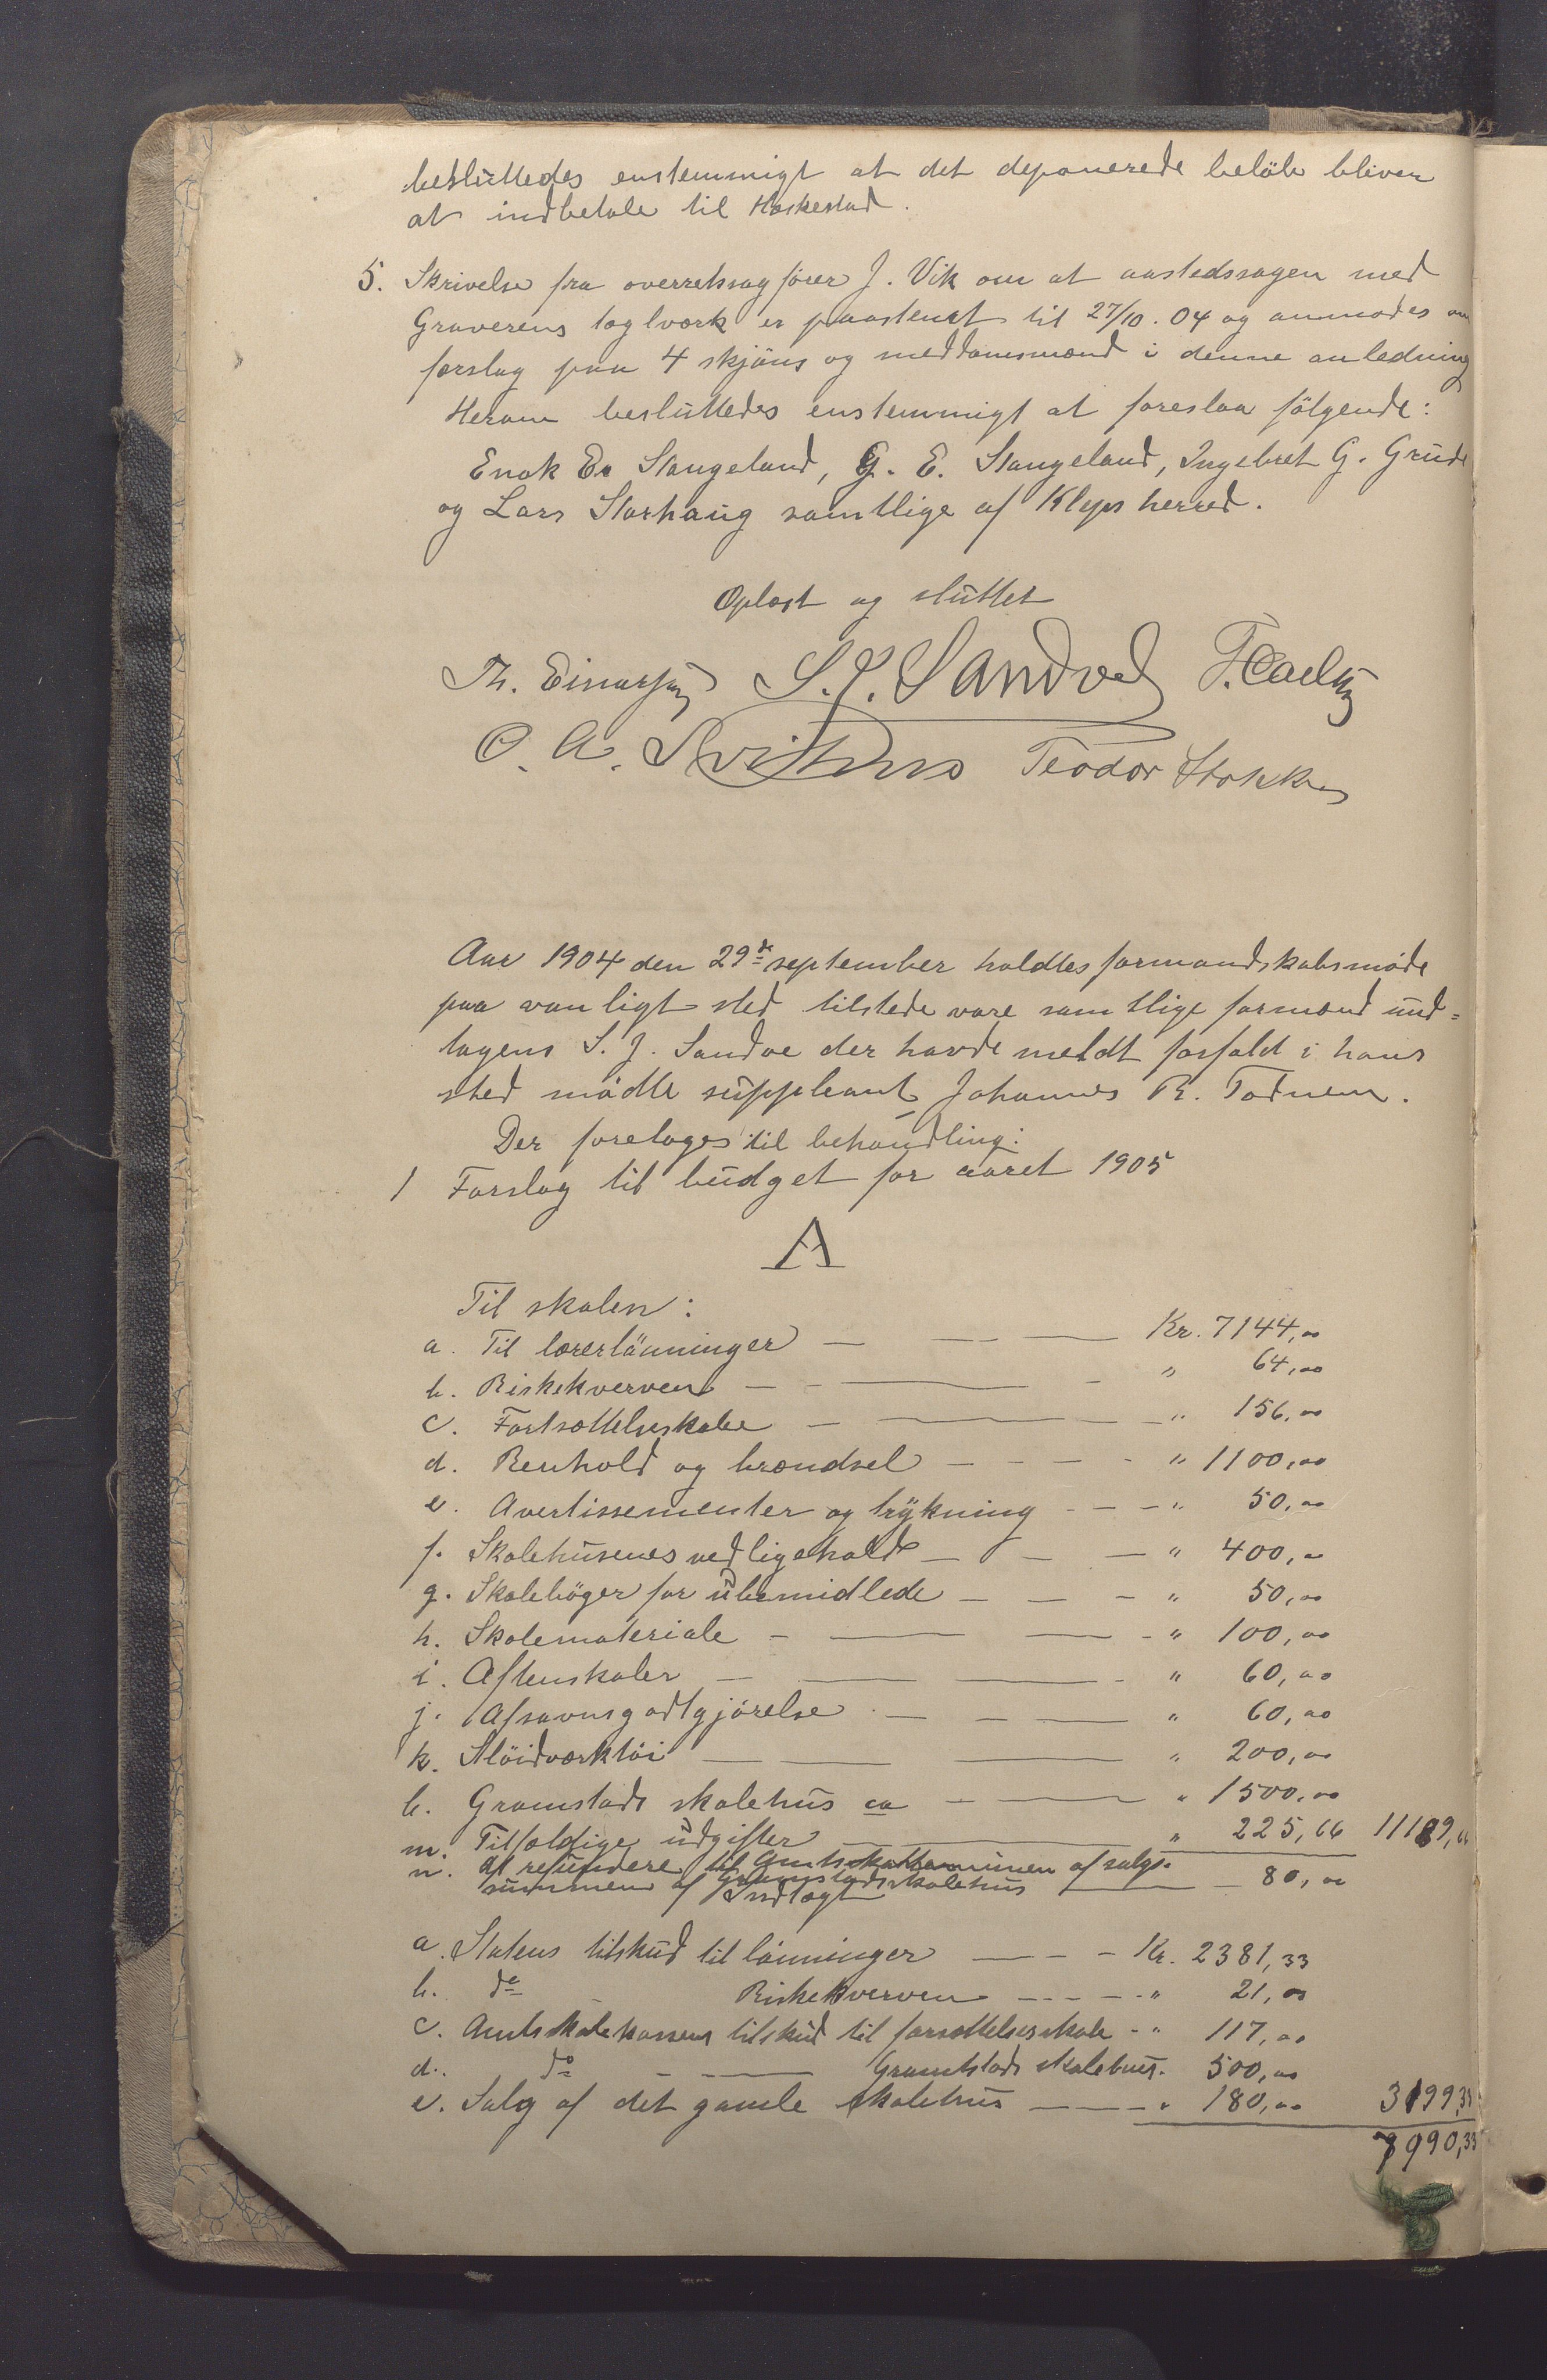 besluttedes enstemmigt at det deponerede beløb bliver
at indbetale til Høskestad.
5. Skrivelse fra overretssagfører J. Vik om at aastedssagen med
Graverens teglværk er paastevnt til 27/10. 04 og anmodes om
forslag paa 4 skjöns og meddomsmænd i denne anledning
Herom besluttedes enstemmigt at foreslaa følgende:
Enok E. Stangeland, G. E. Stangeland, Ingebret G. Grude
og Lars Storhaug samtlige af Kleps herred.
Oplæst og sluttet
Th. Einarsen S. J. Sandve
O. A. Teodor Stokka
Aar 1904 den 29de september holdtes formandskabsmöde
paa vanligt sted tilstede vare samtlige formænd und=
tagens S. J. Sandve der havde meldt forfald i hans
sted mödte suppleant Johannes R. Todnem.
Der foretages til behandling:
1 Forslag til budget for aaret 1905
A
Til skolen:
a. Til lærerlönninger — — — Kr. 7144,00
b. Riskekverven — — — " 64,00
c. Fortsættelsesskole — — — " 156,00
d. Renhold og brændsel — — — " 1100,00
e. Avertissementer og trykning — — " 50,00
f. Skolehusenes vedligehold — — — " 400,00
g. Skolebøger for ubemidlede — — — " 50,00
h. Skolemateriale — — — " 100,00
i. Aftenskoler — — — " 60,00
j. Afsavnsgodtgjörelse — — — " 60,00
k. Slöidværktöi — — — " 200,00
l. Gramstads skolehus ca — — " 1500,00
m. Tilfældige udgifter — — " 225,66 11189,66
n. At refundere til Amtskommunen af salgs-
summen af Gramstads skolehus — — 80,00
Indtægt
a. Statens tilskud til lönninger — — Kr. 2381,33
b. do Riskekverven — — " 21,00
c. Amtsskolekassens tilskud til forsættelsesskole - " 117,00
d. do — — Gramstads skolehus - 500,00
e. Salg af det gamle skolehus — — " 180,00 3199,33
7990,33